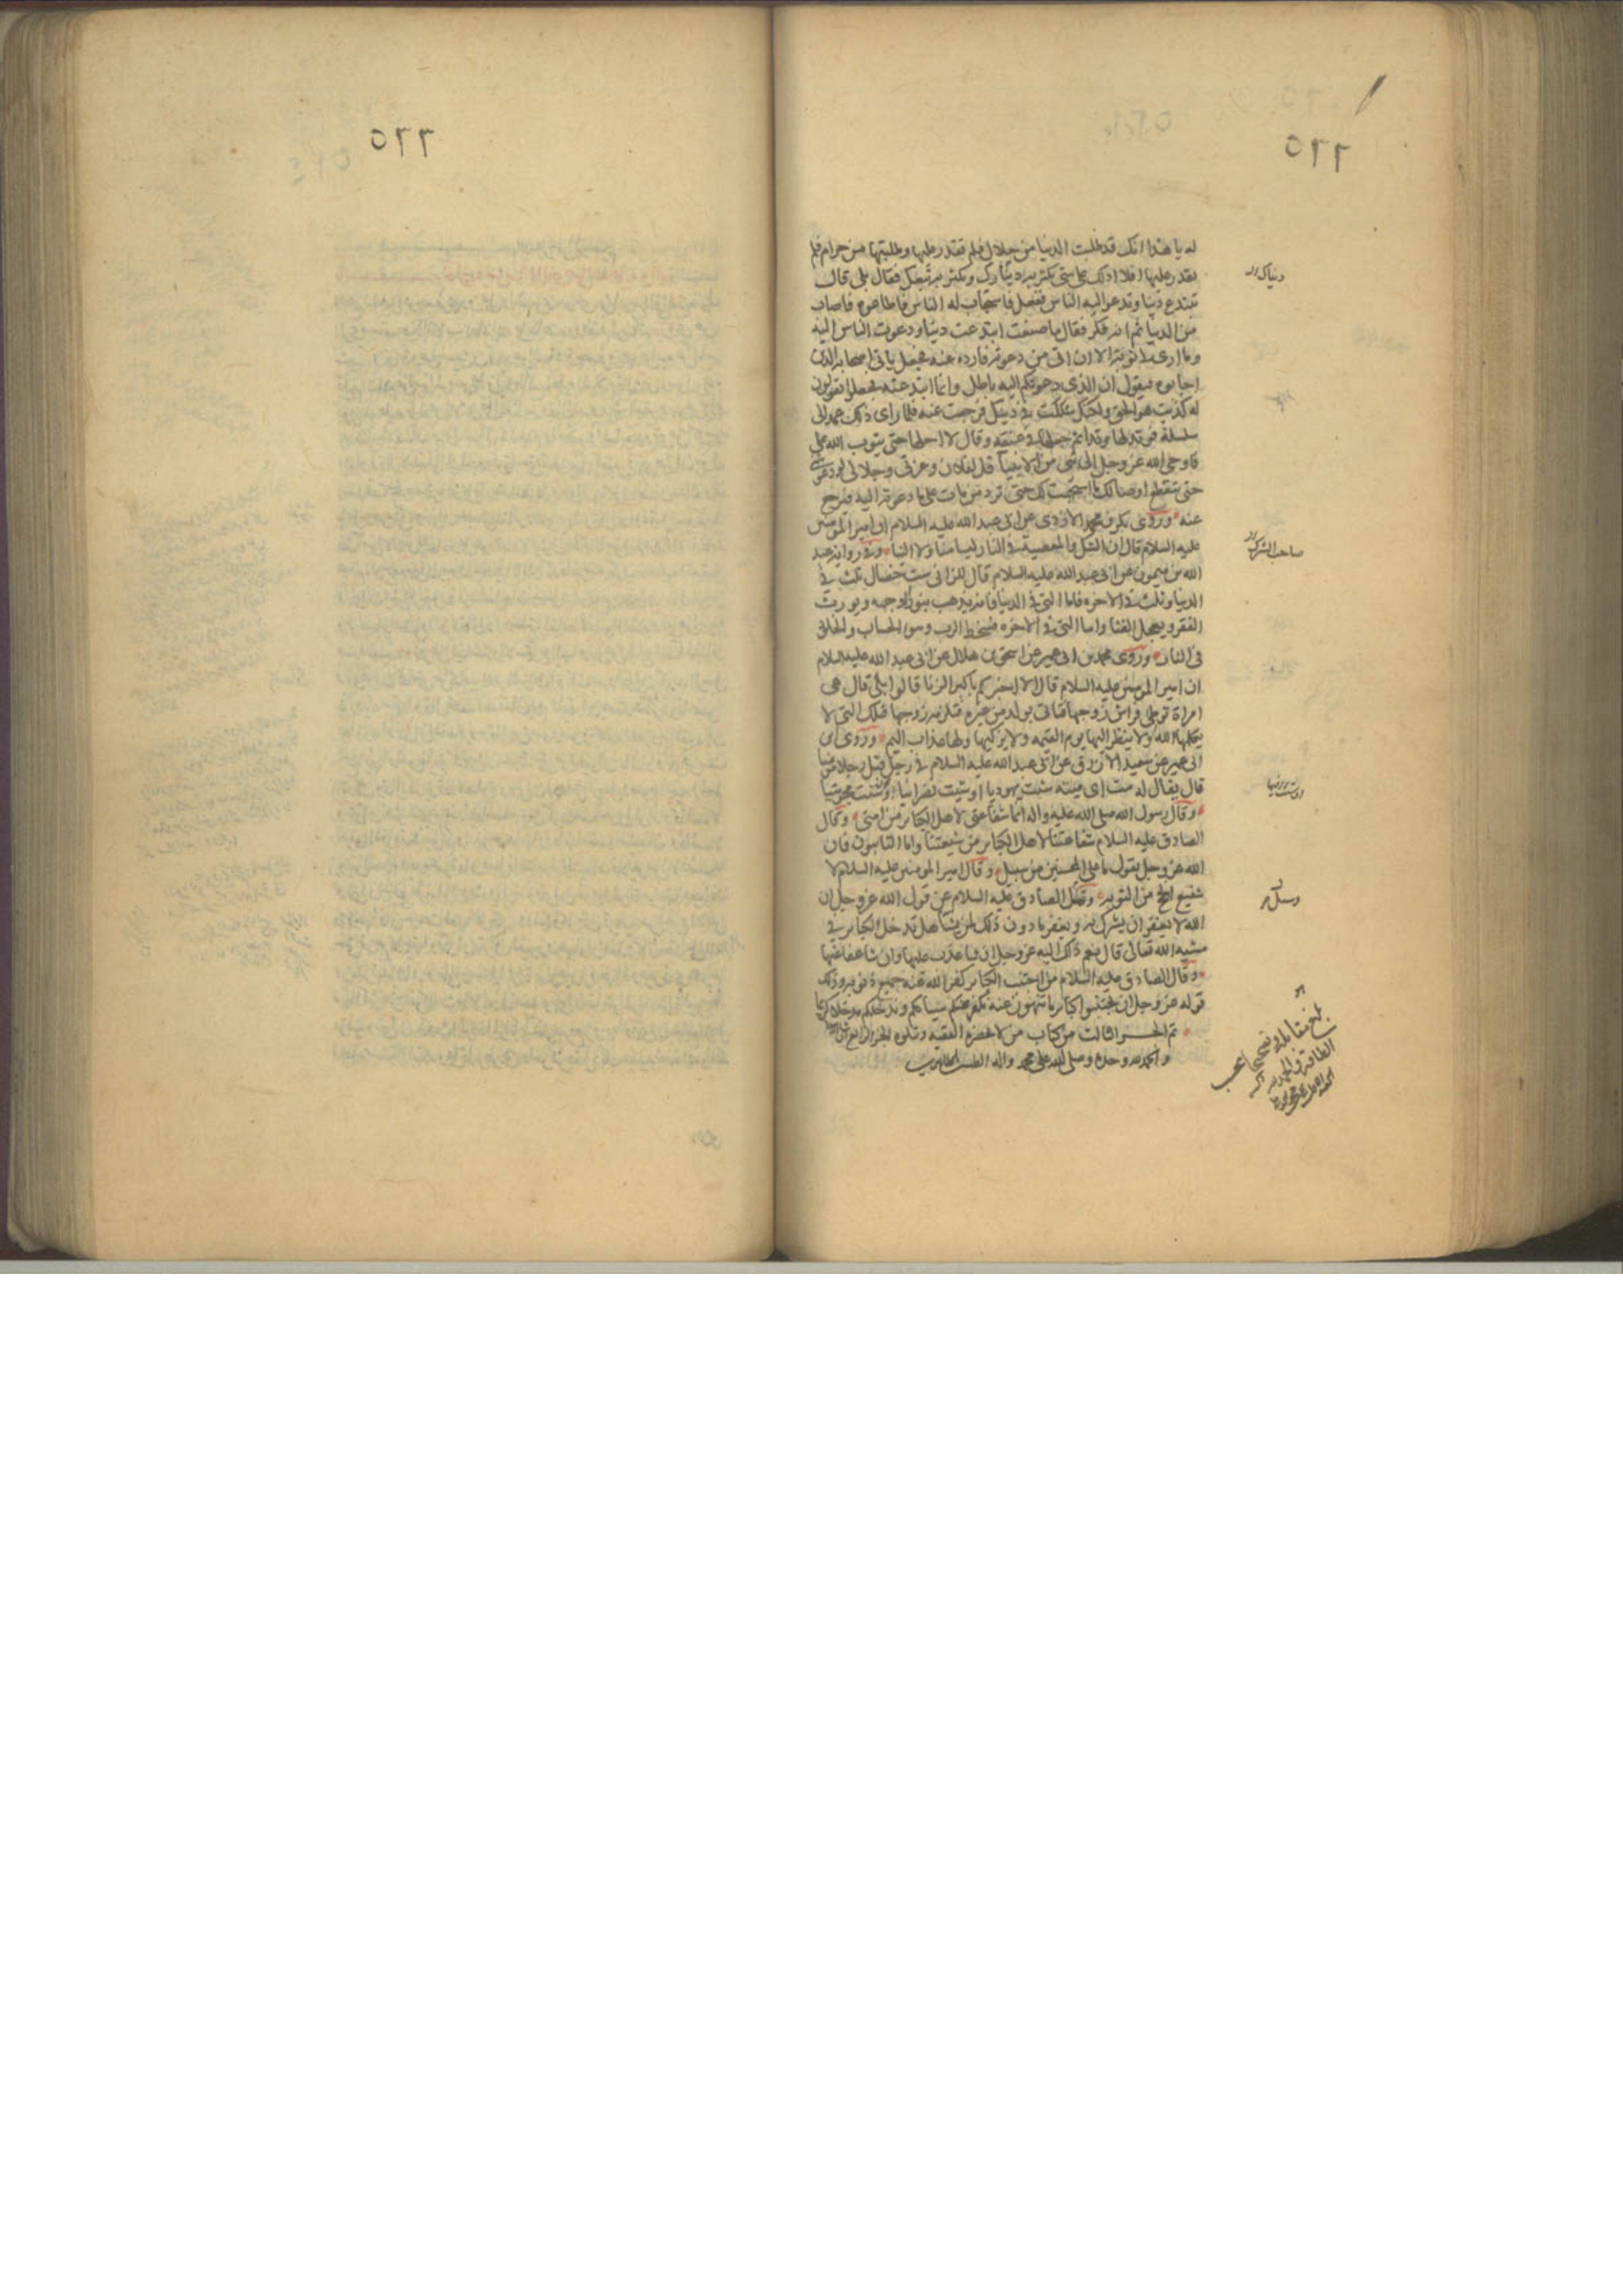 ٦٦٥
٦٦٥
له يا هذا انك قد طلبت الدنيا من حلال فلم تقدر عليها وطلبتها من حرام فلم
تقدر عليها افلا ادلك على شئ يكثر به دنياك ويكثر به تبعك فقال بلى قال
تبتدع دينا وتدعو اليه الناس ففعل فاستجاب له الناس فاطاعوه فاصاب
من الدنيا ثم انه فكر فقال ما صنعت ابتدعت دينا ودعوت الناس اليه
وما ارى لى توبة الا ان اتى من دعوته فارده عنه فجعل ياتى اصحابه الذين
اجابوه فيقول ان الذى دعوتكم اليه باطل وانما ابتدعته فجعلوا يقولون
له كذبت هو الحق ولكنك شككت فى دينك فرجعت عنه فلما راى ذلك عمد الى
سلسلة فوتد لها وتدا ثم جعلها فى عنقه وقال لا احلها حتى يتوب الله على
فاوحى الله عز وجل الى نبى من الانبيا قل لفلان وعزتى وجلالى لو دعوتنى
حتى تنقطع اوصالك ما استجبت لك حتى ترد من مات على ما دعوته اليه فيرجع
عنه وروى بكر بن محمد الازدى عن ابى عبد الله عليه السلام ان امير المومنين
عليه السلام قال ان الشك والمعصية فى النار ليسا منا ولا الينا وفى رواية عبد
الله بن ميمون عن ابى عبد الله عليه السلام قال للزانى ست خصال ثلث فى
الدنيا وثلث فى الاخره فاما التى فى الدنيا فانه يذهب بنور الوجه ويورث
الفقر ويعجل الفنا واما التى فى الاخره فسخط الرب وسوء الحساب والخلود
فى النار وروى محمد بن ابى عمير عن اسحق بن هلال عن ابى عبد الله عليه السلام
ان امير المومنين عليه السلام قال الا اخبركم باكبر الزنا قالوا بلى قال هى
امراة توطى فراش زوجها فتاتى بولد من غيره فتلزمه زوجها فتلك التى لا
يكلمها الله ولا ينظر اليها يوم القيمه ولا يزكيها ولها عذاب اليم وروى ابن
ابى عمير عن سعيد الازرق عن ابى عبد الله عليه السلام فى رجل قتل رجلا مومنا
قال يقال له مت اى ميته شئت يهوديا او شئت نصرانيا او شئت مجوسيا
وقال رسول الله صلى الله عليه واله انما شفاعتى لاهل الكباير من امتى وقال
الصادق عليه السلام شفاعتنا لاهل الكباير من شيعتنا واما التايبون فان
الله عز وجل يقول ما على المحسنين من سبيل وقال امير المومنين عليه السلام لا
شفيع انجح من التوبه وسئل الصادق عليه السلام عن قول الله عز وجل ان
الله لا يغفر ان يشرك به ويغفر ما دون ذلك لمن يشا هل تدخل الكباير فى
مشيه الله تعالى قال نعم ذلك اليه عز وجل ان شا عذب عليها وان شا عفا عنها
وقال الصادق عليه السلام من اجتنب الكباير كفر الله عنه جميع ذنوبه وذلك
قوله عز وجل ان تجتنبوا كباير ما تنهون عنه نكفر عنكم سياتكم وندخلكم مدخلا كريما
تم الجزء الثالث من كتاب من لا يحضره الفقيه ويتلوه الجزء الرابع
والحمد لله وحده وصلى الله على محمد واله الطيبين الطاهرين
دنياك
صاحب الشك
وسئل
بلغ مقابلة وتصحيحا بحسب
الطاقة والحمد لله